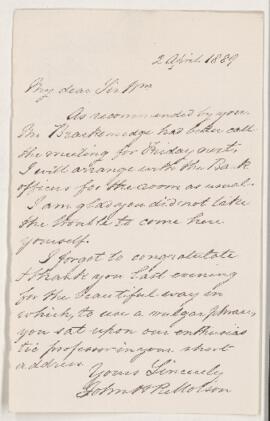 2 April 1889
My dear Sir Wm
As recommended by you
Mr Brackenridge had better call
the meeting for Friday next,
I will arrange with the Bank
officers for the room as usual.
I am glad you did not take
the trouble to come here
yourself.
I forgot to congratulate
& thank you last evening
for the beautiful way in
which, to use a vulgar phrase,
you sat upon our enthusias
tic professor in your short
address.
Yours Sincerely
John H R Molson